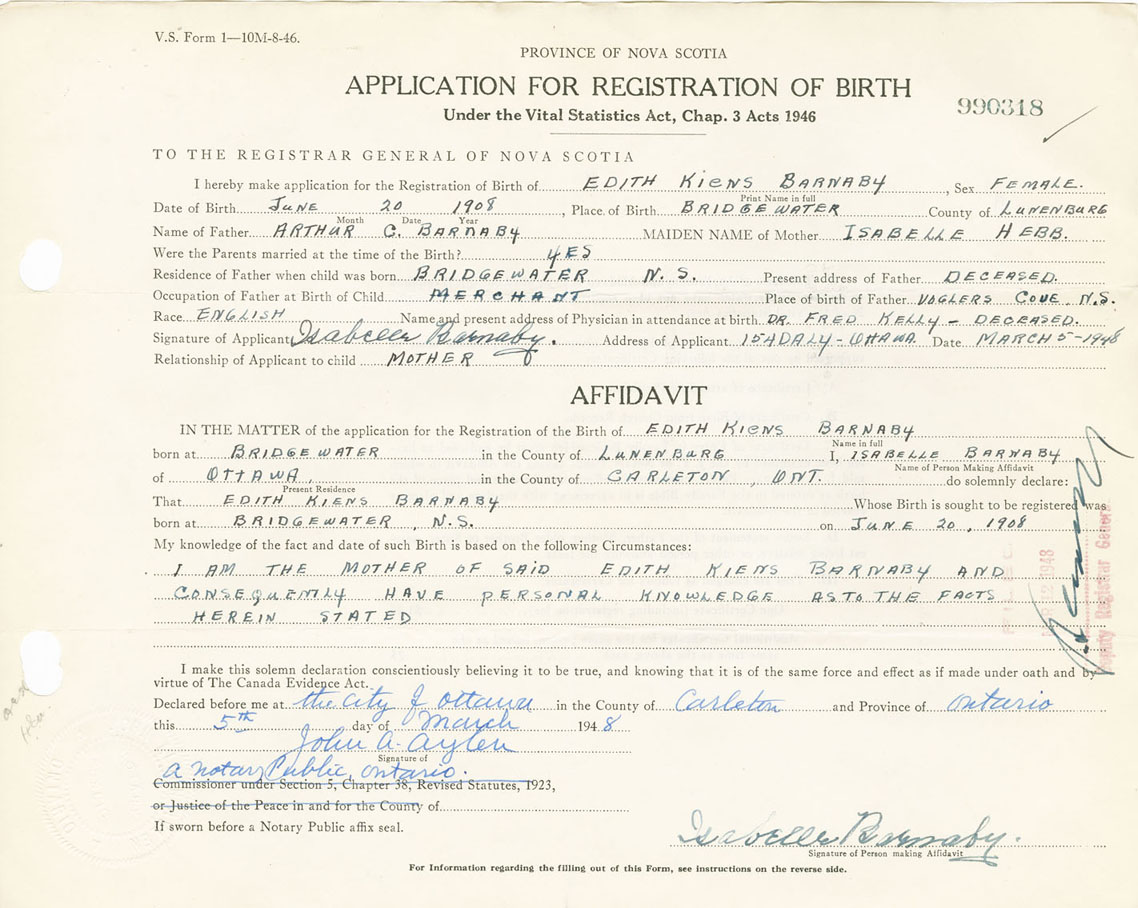 V.S. Form 1—10M-8-46.
PROVINCE OF NOVA SCOTIA
APPLICATION FOR REGISTRATION OF BIRTH
990318
Under the Vital Statistics Act, Chap. 3 Acts 1946
TO THE REGISTRAR GENERAL OF NOVA SCOTIA
I hereby make application for the Registration of Birth of EDITH KIENS BARNABY, Sex FEMALE.
Print Name in full
Date of Birth JUNE 20 1908, Place of Birth BRIDGEWATER County of LUNENBURG
Month Date Year
Name of Father ARTHUR C. BARNABY MAIDEN NAME of Mother ISABELLE HEBB.
Were the Parents married at the time of the Birth? YES
Residence of Father when child was born BRIDGEWATER N.S. Present address of Father DECEASED.
Occupation of Father at Birth of Child MERCHANT Place of birth of Father VOGLERS COVE N.S.
Race ENGLISH Name and present address of Physician in attendance at birth DR. FRED KELLY - DECEASED.
Signature of Applicant Isabelle Barnaby. Address of Applicant 154 DALY - OTTAWA Date MARCH 5-1948
Relationship of Applicant to child MOTHER
AFFIDAVIT
IN THE MATTER of the application for the Registration of the Birth of EDITH KIENS BARNABY
Name in full
born at BRIDGEWATER in the County of LUNENBURG I, ISABELLE BARNABY
Name of Person Making Affidavit
of OTTAWA, in the County of CARLETON, ONT. do solemnly declare:
Present Residence
That EDITH KIENS BARNABY Whose Birth is sought to be registered was
born at BRIDGEWATER, N.S. on JUNE 20, 1908
My knowledge of the fact and date of such Birth is based on the following Circumstances:
I AM THE MOTHER OF SAID EDITH KIENS BARNABY AND
CONSEQUENTLY HAVE PERSONAL KNOWLEDGE AS TO THE FACTS
HEREIN STATED
Deputy Registrar General
1948
I make this solemn declaration conscientiously believing it to be true, and knowing that it is of the same force and effect as if made under oath and by
virtue of The Canada Evidence Act.
Declared before me at the City of Ottawa in the County of Carleton and Province of Ontario
this 5th day of March 1948
John A. Aylen
Signature of
a notary Public, Ontario.
Commissioner under Section 5, Chapter 38, Revised Statutes, 1923,
or Justice of the Peace in and for the County of
If sworn before a Notary Public affix seal.
Isabelle Barnaby.
Signature of Person making Affidavit
For Information regarding the filling out of this Form, see instructions on the reverse side.